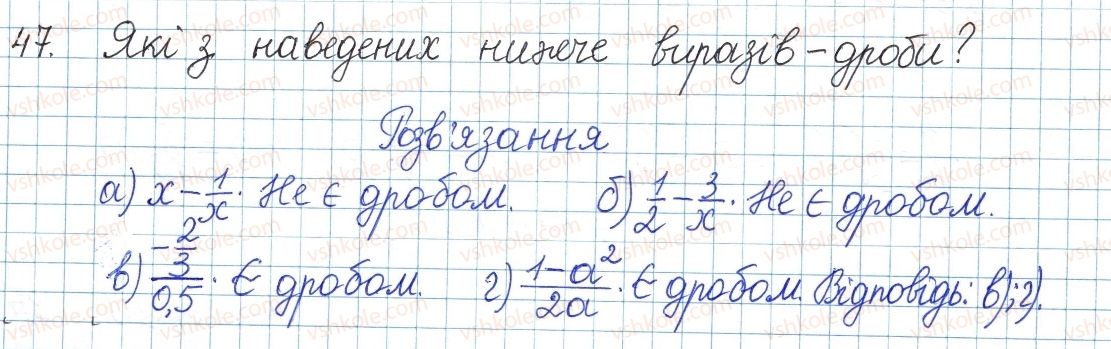 47. Які з наведених нижче виразів – дроби?
Розв'язання
а) x − 1/x. Не є дробом. б) 1/2 − 3/x. Не є дробом.
в) (−2/3)/0,5. Є дробом. г) (1−a²)/2a. Є дробом. Відповідь: в); г).